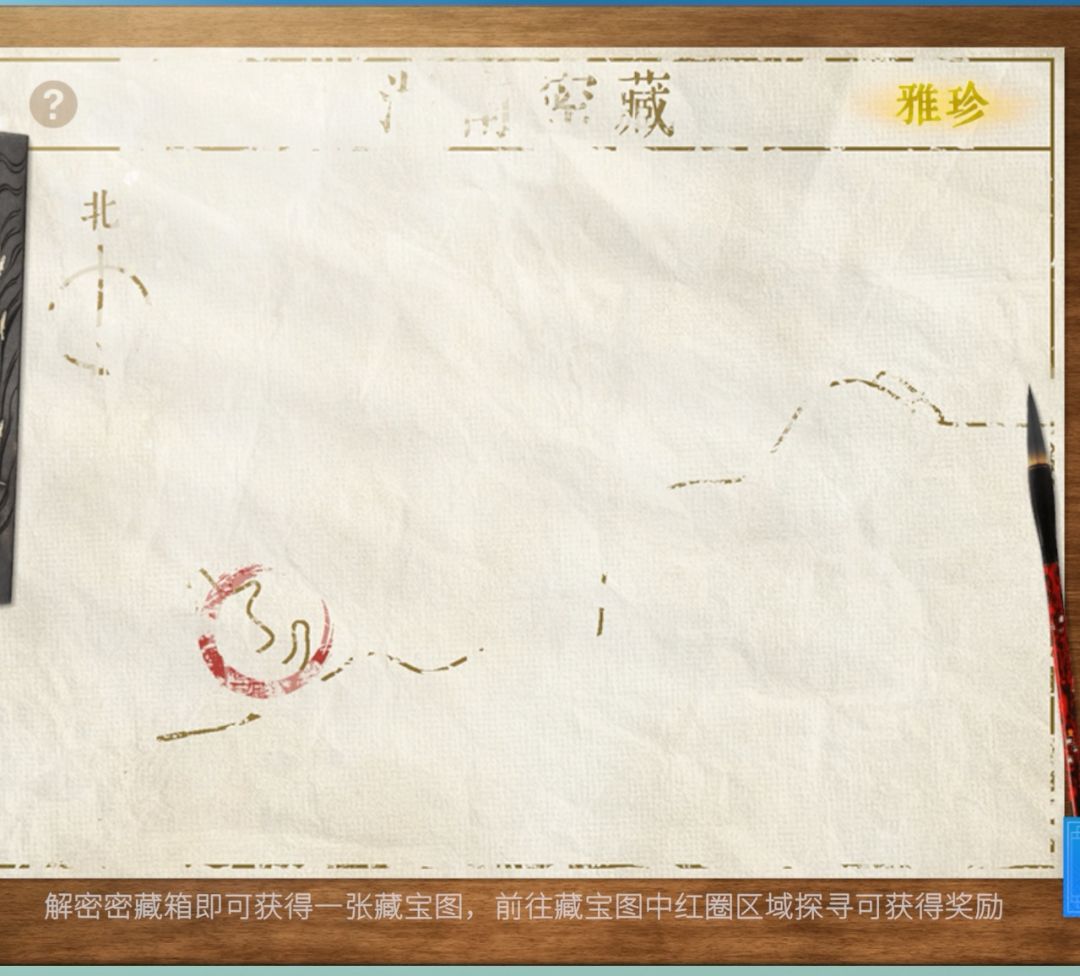 密藏
雅珍
北
解密密藏箱即可获得一张藏宝图，前往藏宝图中红圈区域探寻可获得奖励